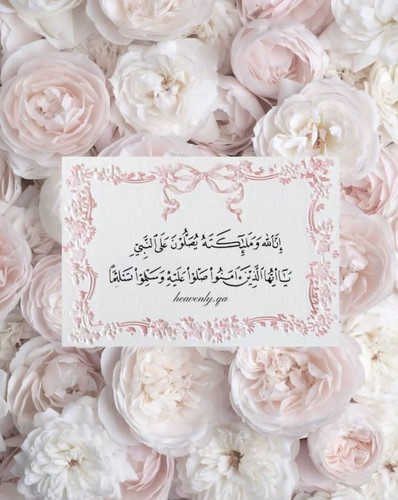 إِنَّ اللَّهَ وَمَلَٰٓئِكَتَهُۥ يُصَلُّونَ عَلَى النَّبِيِّ
يَٰٓأَيُّهَا الَّذِينَ ءَامَنُوا۟ صَلُّوا۟ عَلَيْهِ وَسَلِّمُوا۟ تَسْلِيمًا
heavenly.qa